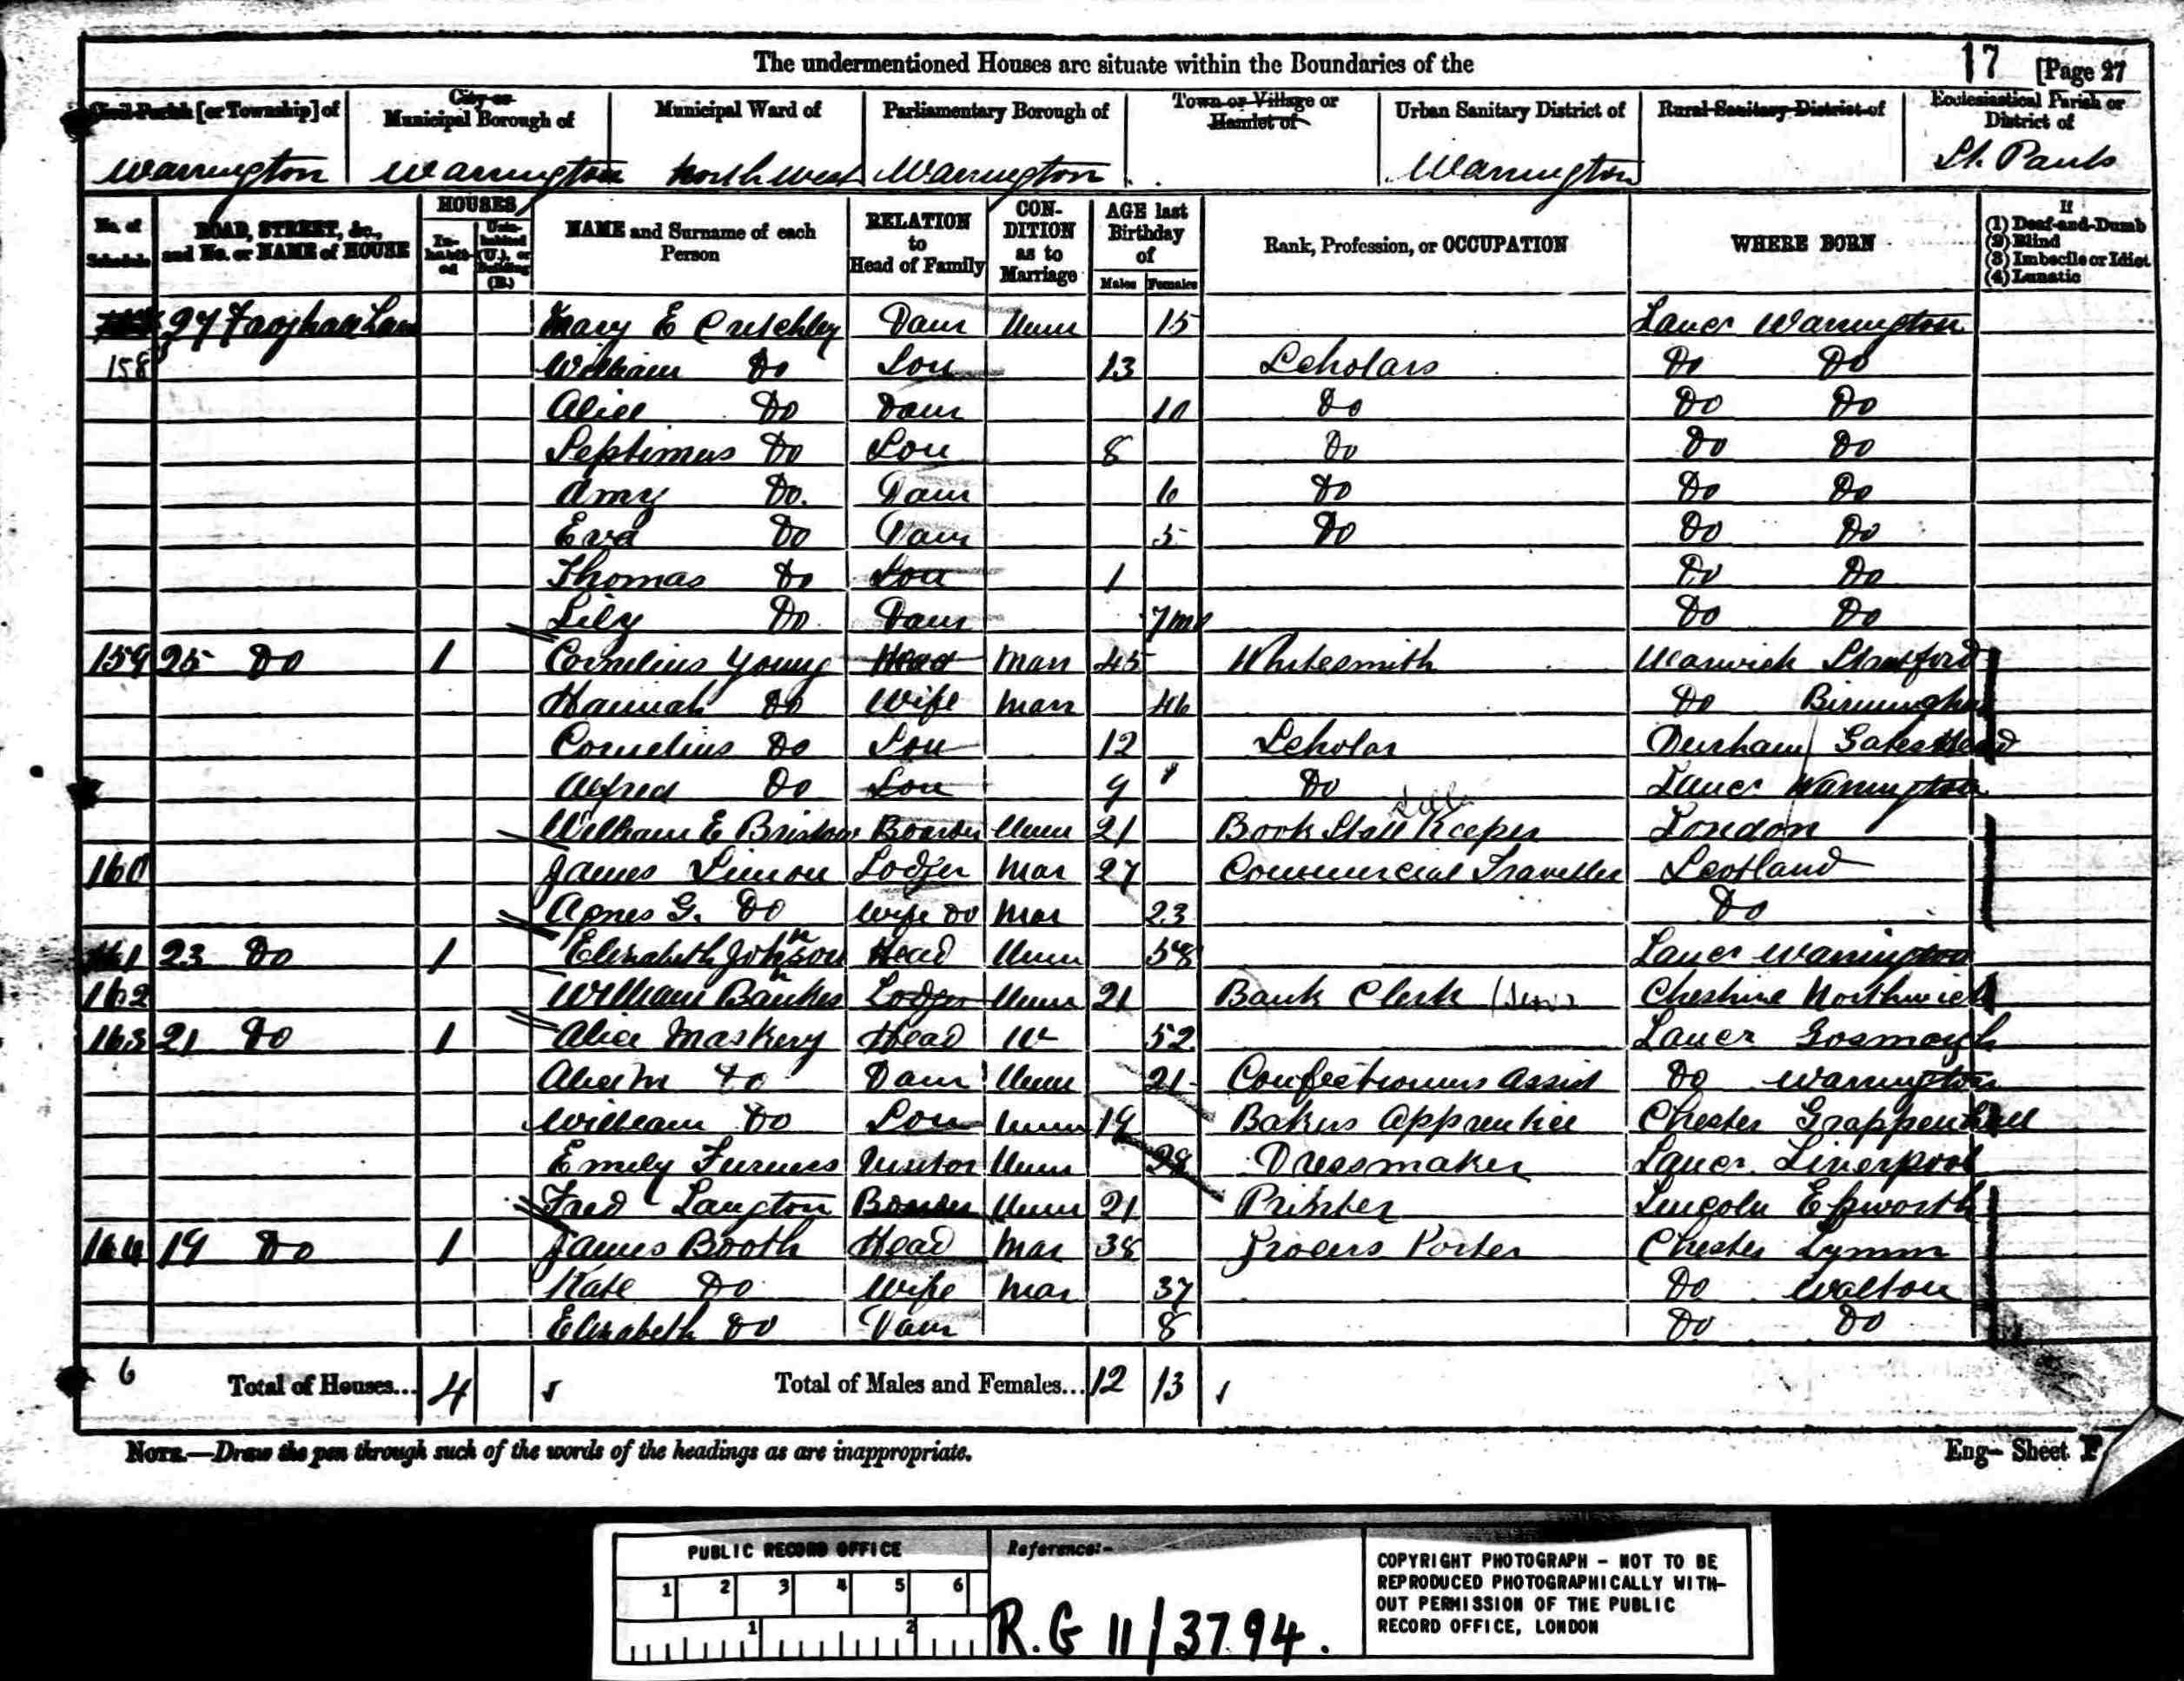 The undermentioned Houses are situate within the Boundaries of the
17 [Page 27
Civil Parish [or Township] of
City or Municipal Borough of
Municipal Ward of
Parliamentary Borough of
Town or Village or Hamlet of
Urban Sanitary District of
Rural Sanitary District of
Ecclesiastical Parish or District of
Warrington Warrington North West Warrington Warrington St. Pauls
No. of Schedule
ROAD, STREET, &c., and No. or NAME of HOUSE
HOUSES
In-habit-ed
Unin-habited (U.), or Building (B.)
NAME and Surname of each Person
RELATION to Head of Family
CON-DITION as to Marriage
AGE last Birthday of
Males Females
Rank, Profession, or OCCUPATION
WHERE BORN
If
(1) Deaf-and-Dumb
(2) Blind
(3) Imbecile or Idiot
(4) Lunatic
27 Mary E Critchley Daur Unm 15 Lancr Warrington
158 William Do Son 13 Scholars Do Do
Alice Do Daur 10 Do Do Do
Septimus Do Son 8 Do Do Do
Amy Do. Daur 6 Do Do Do
Eva Do Daur 5 Do Do Do
Thomas Do Son 1 Do Do
Lily Do Daur 7 mo Do Do
159 25 Do 1 Cornelius Young Head Marr 45 Whitesmith Warwick Stratford
Hannah Do Wife Marr 46 Do Birmingham
Cornelius Do Son 12 Scholar Durham Gateshead
Alfred Do Son 9 Do Lancr Warrington
William E Bristow Boarder Unm 21 Book Stall Keeper London
160 James Simon Lodger Mar 27 Commercial Traveller Scotland
Agnes G. Do Wife Do Mar 23 Do
161 23 Do 1 Elizabeth Johnson Head Unm 58 Lancr Warrington
162 William Bankes Lodger Unm 21 Bank Clerk Cheshire Northwich
163 21 Do 1 Alice Maskery Head W 52 Lancr
Alice M Do Daur Unm 21 Confectioners Assist Do Warrington
William Do Son Unm 19 Bakers Apprentice Chester Grappenhall
Emily Furness Visitor Unm 28 Dressmaker Lancr. Liverpool
Fred Langton Boarder Unm 21 Printer Lincoln Epworth
164 19 Do 1 James Booth Head Mar 38 Grocers Porter Chester Lymm
Kate Do Wife Mar 37 Do Walton
Elizabeth Do Daur 8 Do Do
6 Total of Houses... 4 Total of Males and Females... 12 13
NOTE.—Draw the pen through such of the words of the headings as are inappropriate.
Eng— Sheet F
PUBLIC RECORD OFFICE
1 2 3 4 5 6
1 2
Reference:-
R.G 11/3794.
COPYRIGHT PHOTOGRAPH - NOT TO BE
REPRODUCED PHOTOGRAPHICALLY WITH-
OUT PERMISSION OF THE PUBLIC
RECORD OFFICE, LONDON